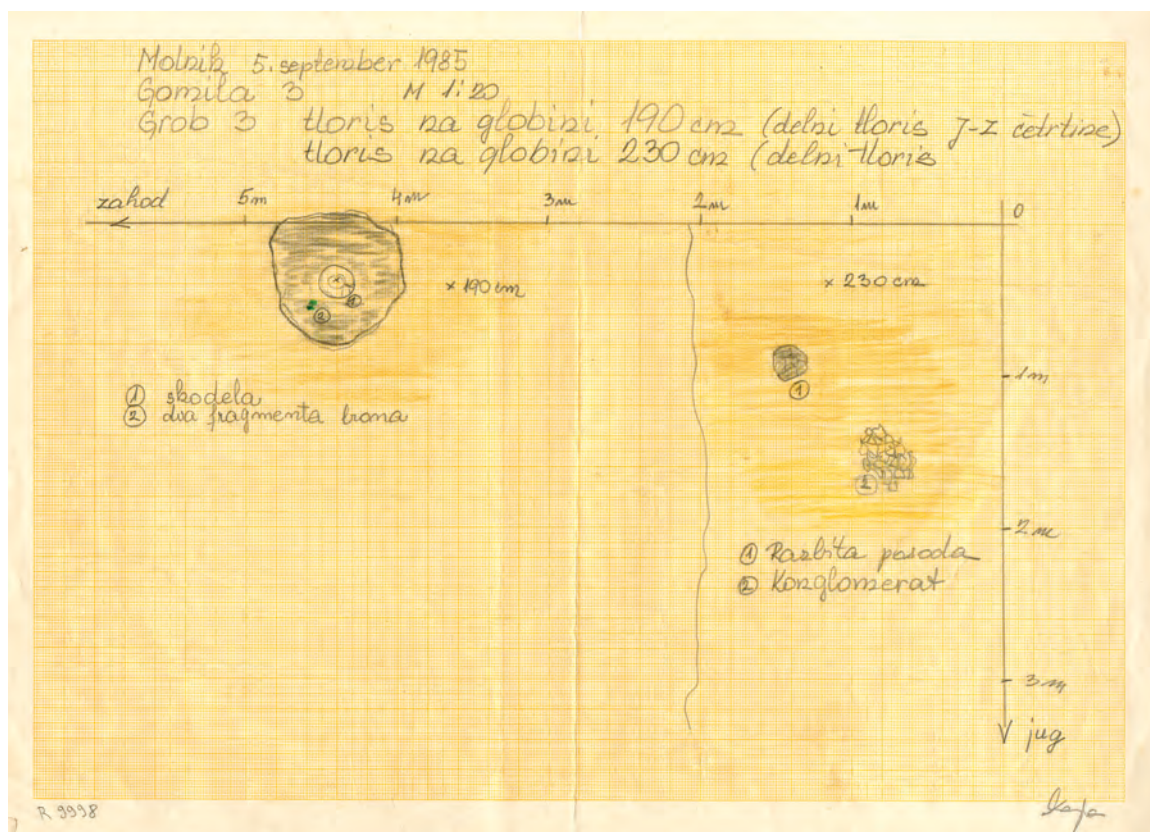 Molnik 5. september 1985
Gomila 3 M 1:20
Grob 3 tloris na globini 190 cm (delni tloris J-Z četrtine)
tloris na globini 230 cm (delni tloris
zahod 5m 4m 3m 2m 1m 0
× 190 cm
× 230 cm
1
2
1
1m
① skodela
② dva fragmenta brona
2
2m
① Razbita posoda
② Konglomerat
3m
jug
R 9998